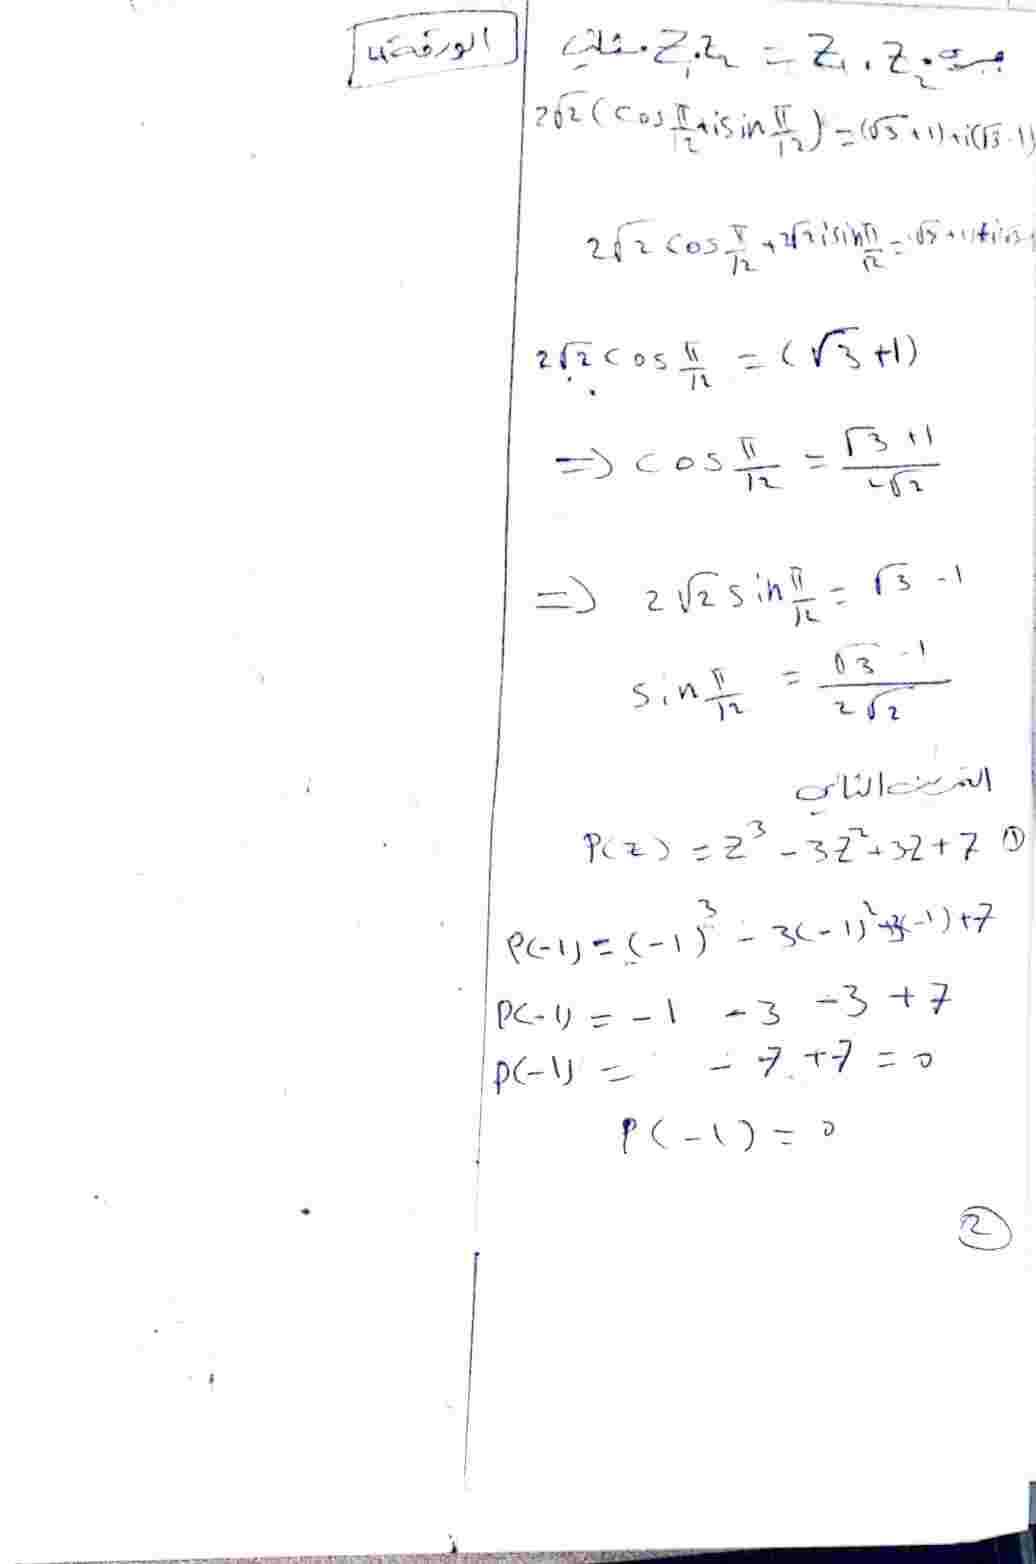 الورقة 4
جبري Z₁.Z₂ = Z₁.Z₂ مثلثي
2√2(cos π/12 + i sin π/12) = (√3+1)+i(√3-1)
2√2 cos π/12 + 2√2 i sin π/12 = (√3+1)+i(√3-
2√2 cos π/12 = (√3+1)
=> cos π/12 = √3+1/2√2
=> 2√2 sin π/12 = √3-1
sin π/12 = √3-1/2√2
التمرين الثاني
① P(z) = z³-3z²+3z+7
P(-1) = (-1)³-3(-1)²+3(-1)+7
P(-1) = -1 -3 -3 +7
P(-1) = -7+7 = 0
P(-1) = 0
②